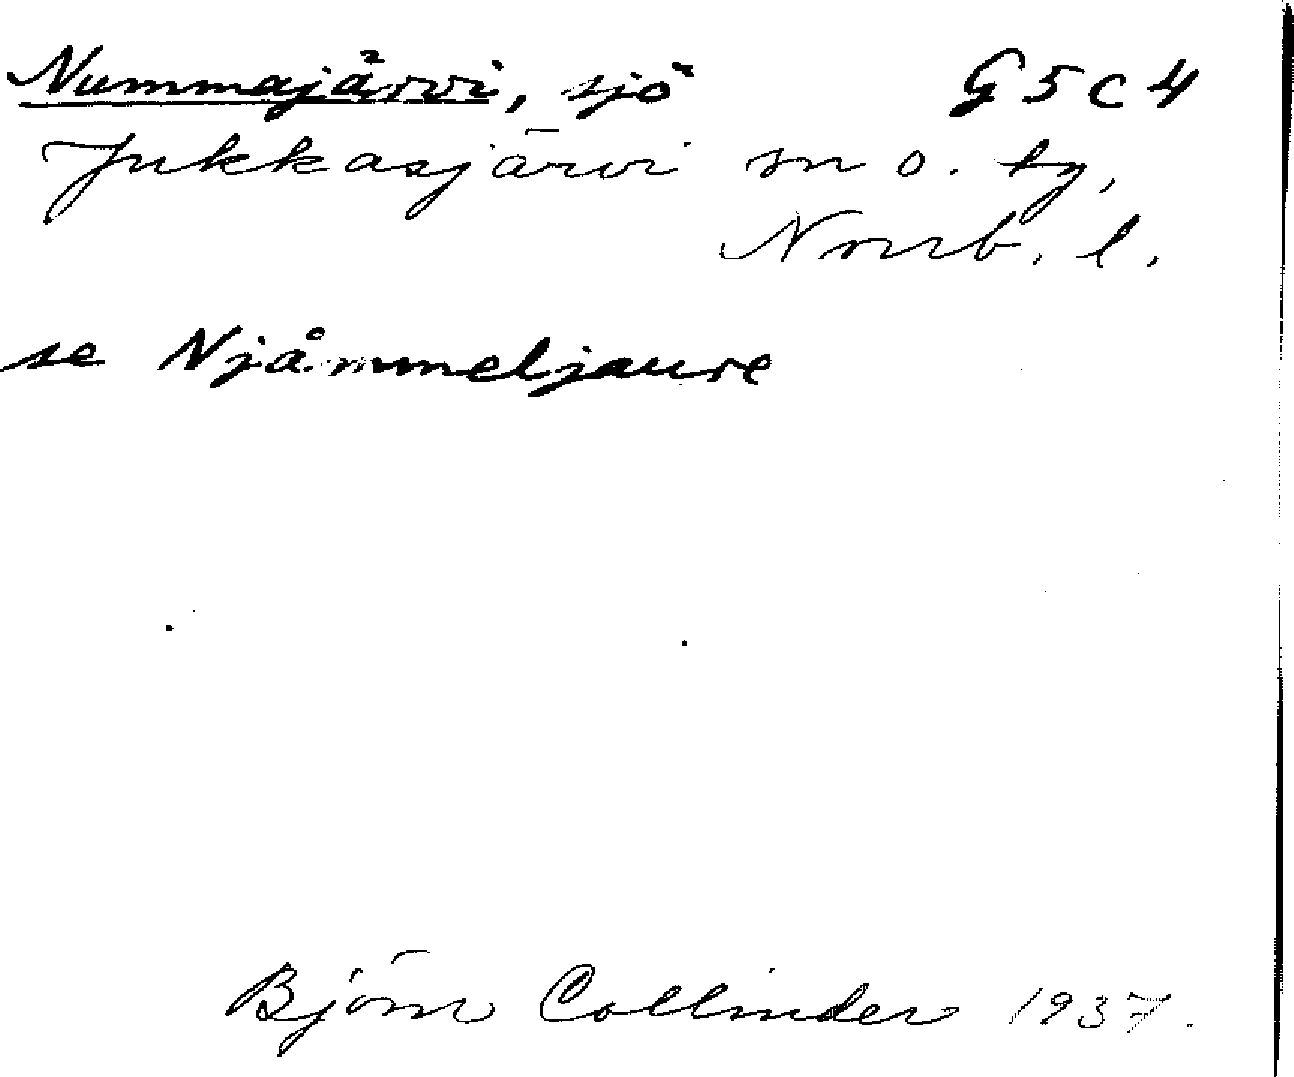 Nummajärvi, sjö G5C4
Jukkasjärvi sn o. tg,
Norrb. l.
se Njåmmeljaure
Björn Collinder 1937.